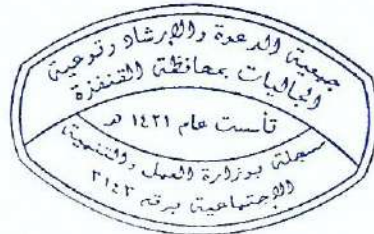 جمعية الدعوة والإرشاد وتوعية
الجاليات بمحافظة القنفذة
تأست عام ١٤٢١ هـ
مسجلة بوزارة العمل والتنمية
الإجتماعية برقم ٣١٤٢